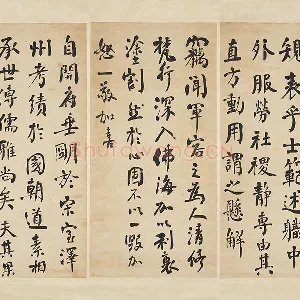 魏表乎士範述職中
外服勞社稷靜專由其
直方動用謂之懸解
竊聞軍容之為人清修
梵行深入佛海加以利衰
塗割並於心固不以一毀加
怒一敬加喜
自開府垂明於宋室澤
州考績於國朝道素相
承世傳儒雅尚矣夫其果